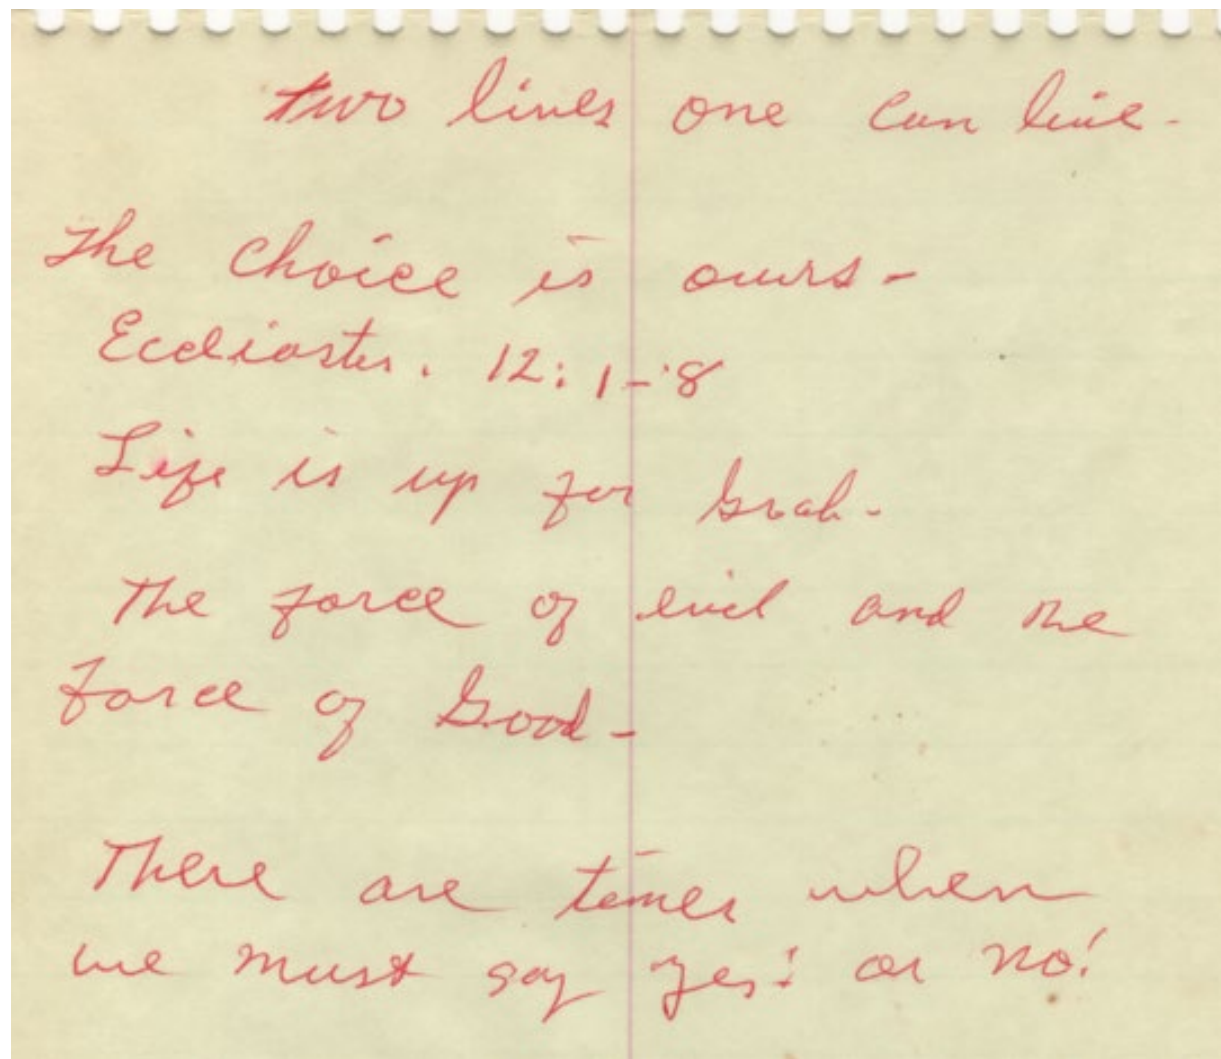 two lives one can live -
The choice is ours -
Ecclisaster. 12:1-8
Life is up for Grab -
The force of evil and the
force of Good -
There are times when
we must say yes! or no!